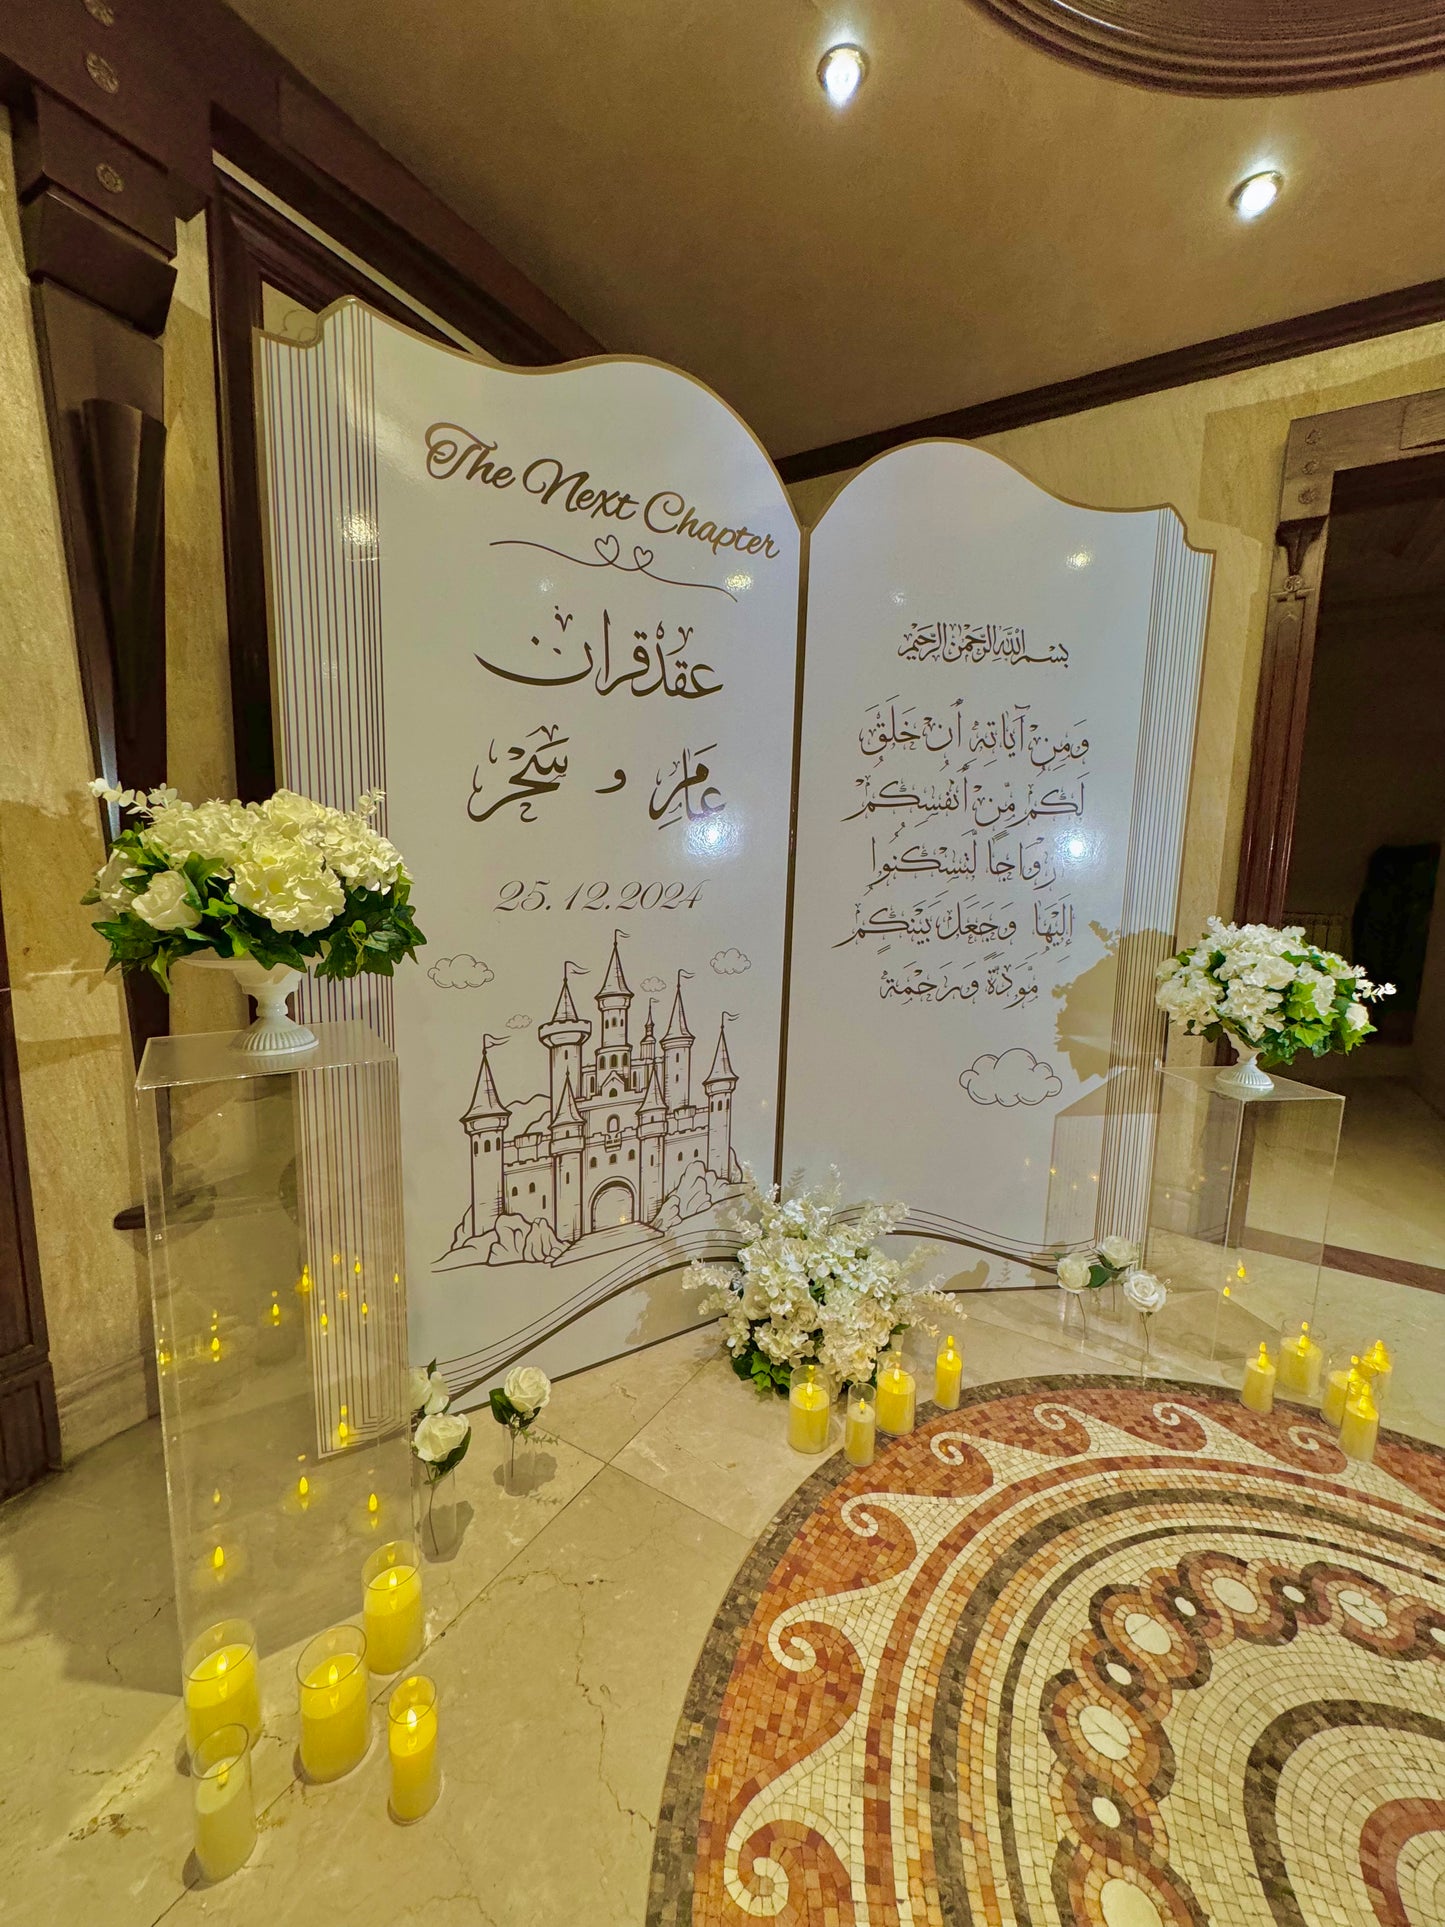 The Next Chapter
عقد قران
عَامِر و سَحَر
25.12.2024
بسم الله الرحمن الرحيم
وَمِنْ آيَاتِهِ أَنْ خَلَقَ
لَكُم مِّنْ أَنفُسِكُمْ
أَزْوَاجًا لِّتَسْكُنُوا
إِلَيْهَا وَجَعَلَ بَيْنَكُم
مَّوَدَّةً وَرَحْمَةً